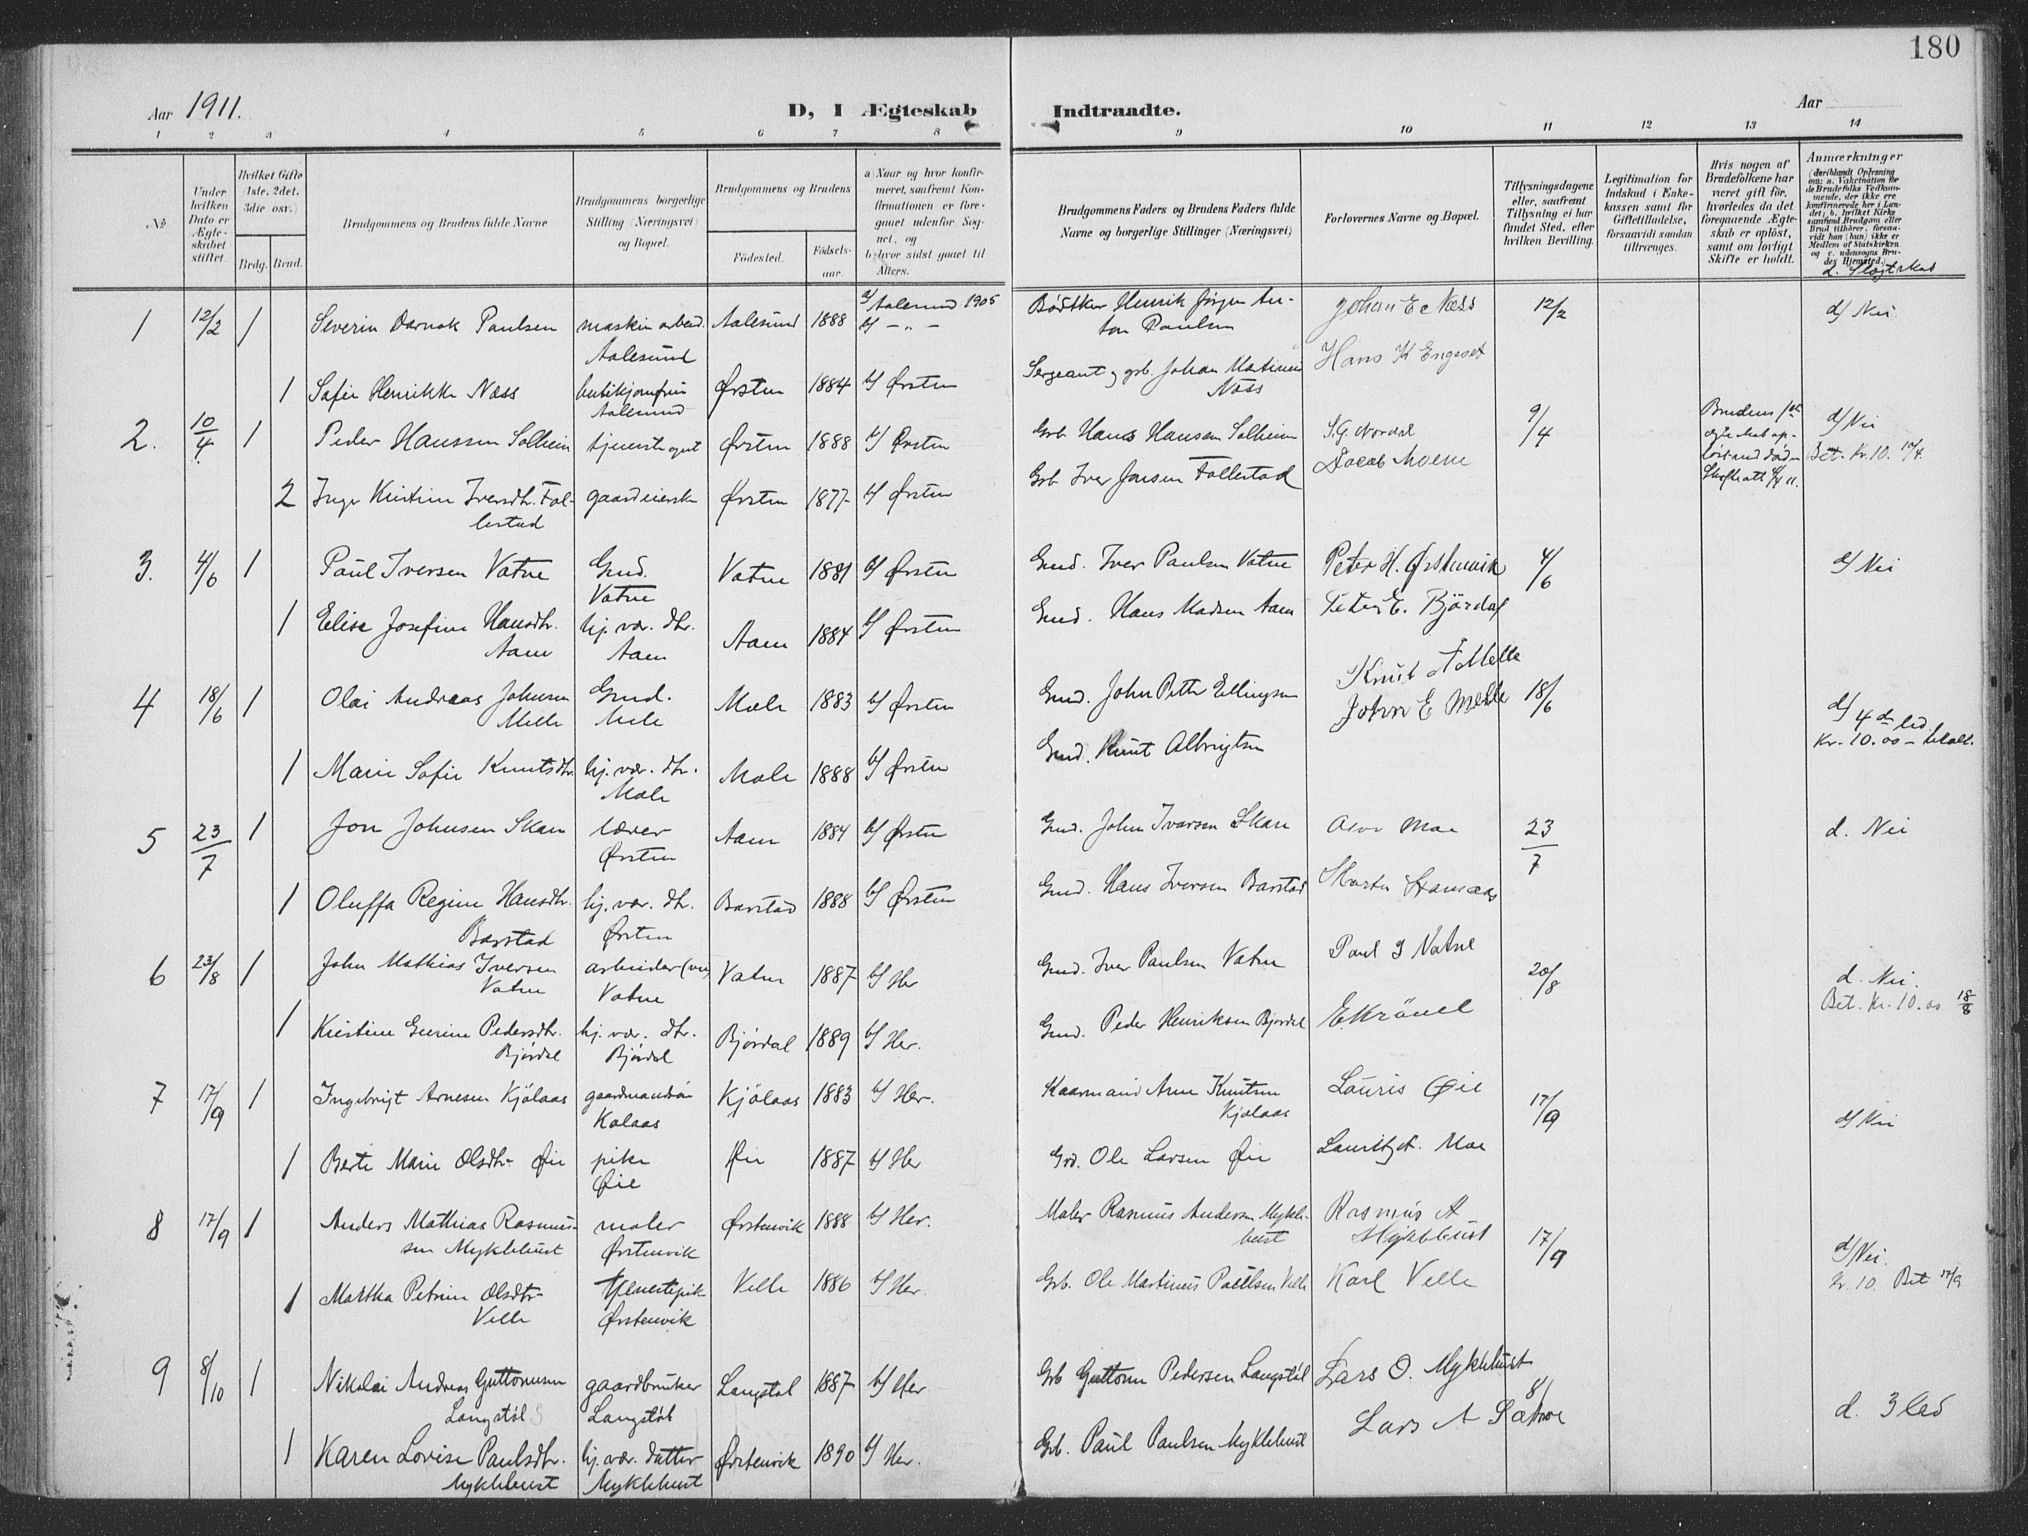 180
Aar 1911.
D, I Ægteskab Indtraadte.
Aar
1 2 3 4 5 6 7 8 9 10 11 12 13 14
No.
Under hvilken Dato er Ægteskabet stiftet.
Hvilket Gifte 1ste, 2det, 3die osv.)
Brdg. Brud.
Brudgommens og Brudens fulde Navne
Brudgommens borgerlige Stilling (Næringsvei) og Bopæl.
Brudgommens og Brudens
Fødested.
Fødselsaar.
a) Naar og hvor konfirmeret, saafremt Konfirmationen er foregaaet udenfor Sognet, og
b) hvor sidst gaaet til Alters.
Brudgommens Faders og Brudens Faders fulde Navne og borgerlige Stillinger (Næringsvei)
Forlovernes Navne og Bopæl.
Tillysningsdagene eller, saafremt Tillysning ei har fundet Sted, efter hvilken Bevilling.
Legitimation for Indskud i Enkekassen samt for Giftetilladelse, forsaavidt saadan tiltrænges.
Hvis nogen af Brudefolkene har været gift før, hvorledes da det foregaaende Ægteskab er opløst, samt om lovligt Skifte er holdt.
Anmærkninger
(deriblandt Oplysning om: a. Vakcination for de Brudefolks Vedkommende, der ikke ere konfirmerede her i Landet; b. hvilket Kirkesamfund Brudgom eller Brud tilhører, forsaavidt han (hun) ikke er Medlem af Statskirken og c. udensogns Brudes Hjemsted.)
d. Slægtskab
1 12/2 1 Severin Paulsen maskinarbeid. Aalesund 1888 a/ Aalesund 1905 Bødtker Henrik Jørgen An- Johan E Næss 12/2 d/ Nei
Aalesund b/ - " - ton Paulsen
1 Sofie Henrikke Næss Ørsten 1884 b/ Ørsten Sergeant og grb. Johan Martinius Hans K Engeset
Aalesund Næss
2. 10/4 1 Peder Hanssen Solheim Ørsten 1888 b/ Ørsten Grb. Hans Hansen Solheim 9/4 Brudens 1ste d/ Nei
Jacob Moene Bet. Kr. 10.
2 Inger Kristine Iversdtr. Fol- gaardeierske Ørsten 1877 b/ Ørsten Grb. Iver Jonsen Follestad
lestad
3. 4/6 1 Paul Iversen Vatne Gmd. Vatne 1881 b/ Ørsten Gmd. Iver Paulsen Vatne Peter H. Østenvik 4/6 d/ Nei
Vatne
1 Elise Josefine Hansdtr. hj. vær. dtr. Aam 1884 b/ Ørsten Gmd. Hans Madsen Aam Peter E. Bjørdal
Aam Aam
4 18/6 1 Olai Andreas Johnsen Gmd. Mæle 1883 b/ Ørsten Gmd. John Peter Ellingsen Knut A Melle 18/6 d/ 4de led
Melle Mele John E Melle Kr. 10.00 - betalt.
1 Marie Sofie Knutsdtr. hj. vær. dtr. Mæle 1888 b/ Ørsten Gmd. Knut Albrigtsen
Mæle
5 23/7 1 Jon Johnsen Skau lærer Aam 1884 b/ Ørsten Gmd. John Ivarsen Skau 23/7 d. Nei
Ørsten
1 Oluffa Regine Hansdtr. hj. vær. dtr. Barstad 1888 b/ Ørsten Gmd. Hans Iversen Barstad
Barstad Ørsten
6 23/8 1 John Mathias Iversen arbeider Vatne 1887 b/ Her Gmd. Iver Paulsen Vatne Paul I Vatne 20/8 d. Nei.
Vatne Vatne Bet. Kr. 10.00 18/8
1 Kristine Gurine Pedersdtr. hj. vær. dtr. Bjørdal 1889 b/ Her. Gmd. Peder Henriksen Bjørdal
Bjørdal Bjørdal
7 17/9 1 Ingebrigt Arnesen Kjølaas gaardmandsøn Kjølaas 1883 b/ Her. Kaarmand Arne Knutsen Lauris Øie 17/9 d/ Nei
Kølaas Kjølaas
1 Berte Marie Olsdtr. Øie pike Øie 1887 b/ Her Grd. Ole Larsen Øie
Øie
8 17/9 1 Anders Mathias Rasmus- maler Ørstenvik 1888 b/ Her. Maler Rasmus Andersen Mykle- Rasmus A 17/9 d/ Nei.
sen Myklebust Ørstenvik bust Myklebust Kr 10 Bet 17/9
1 Martha Petrine Olsdtr. Tjenestepik Velle 1886 b/ Her. Grb. Ole Martinus Paulsen Velle Karl Velle
Velle Ørstenvik
9 8/10 1 Nikolai Andreas Guttormsen gaardbruker Langstøl 1887 b/ Her Grb Guttorm Pedersen Langstøl Lars O. Myklebust 8/ d. 3 led
Langstøl Langstøl Lars A Sætre
1 Karen Lovise Paulsdtr. hj. vær. datter Ørstenvik 1890 b/ Her. Grb. Paul Paulsen Myklebust
Myklebust Myklebust